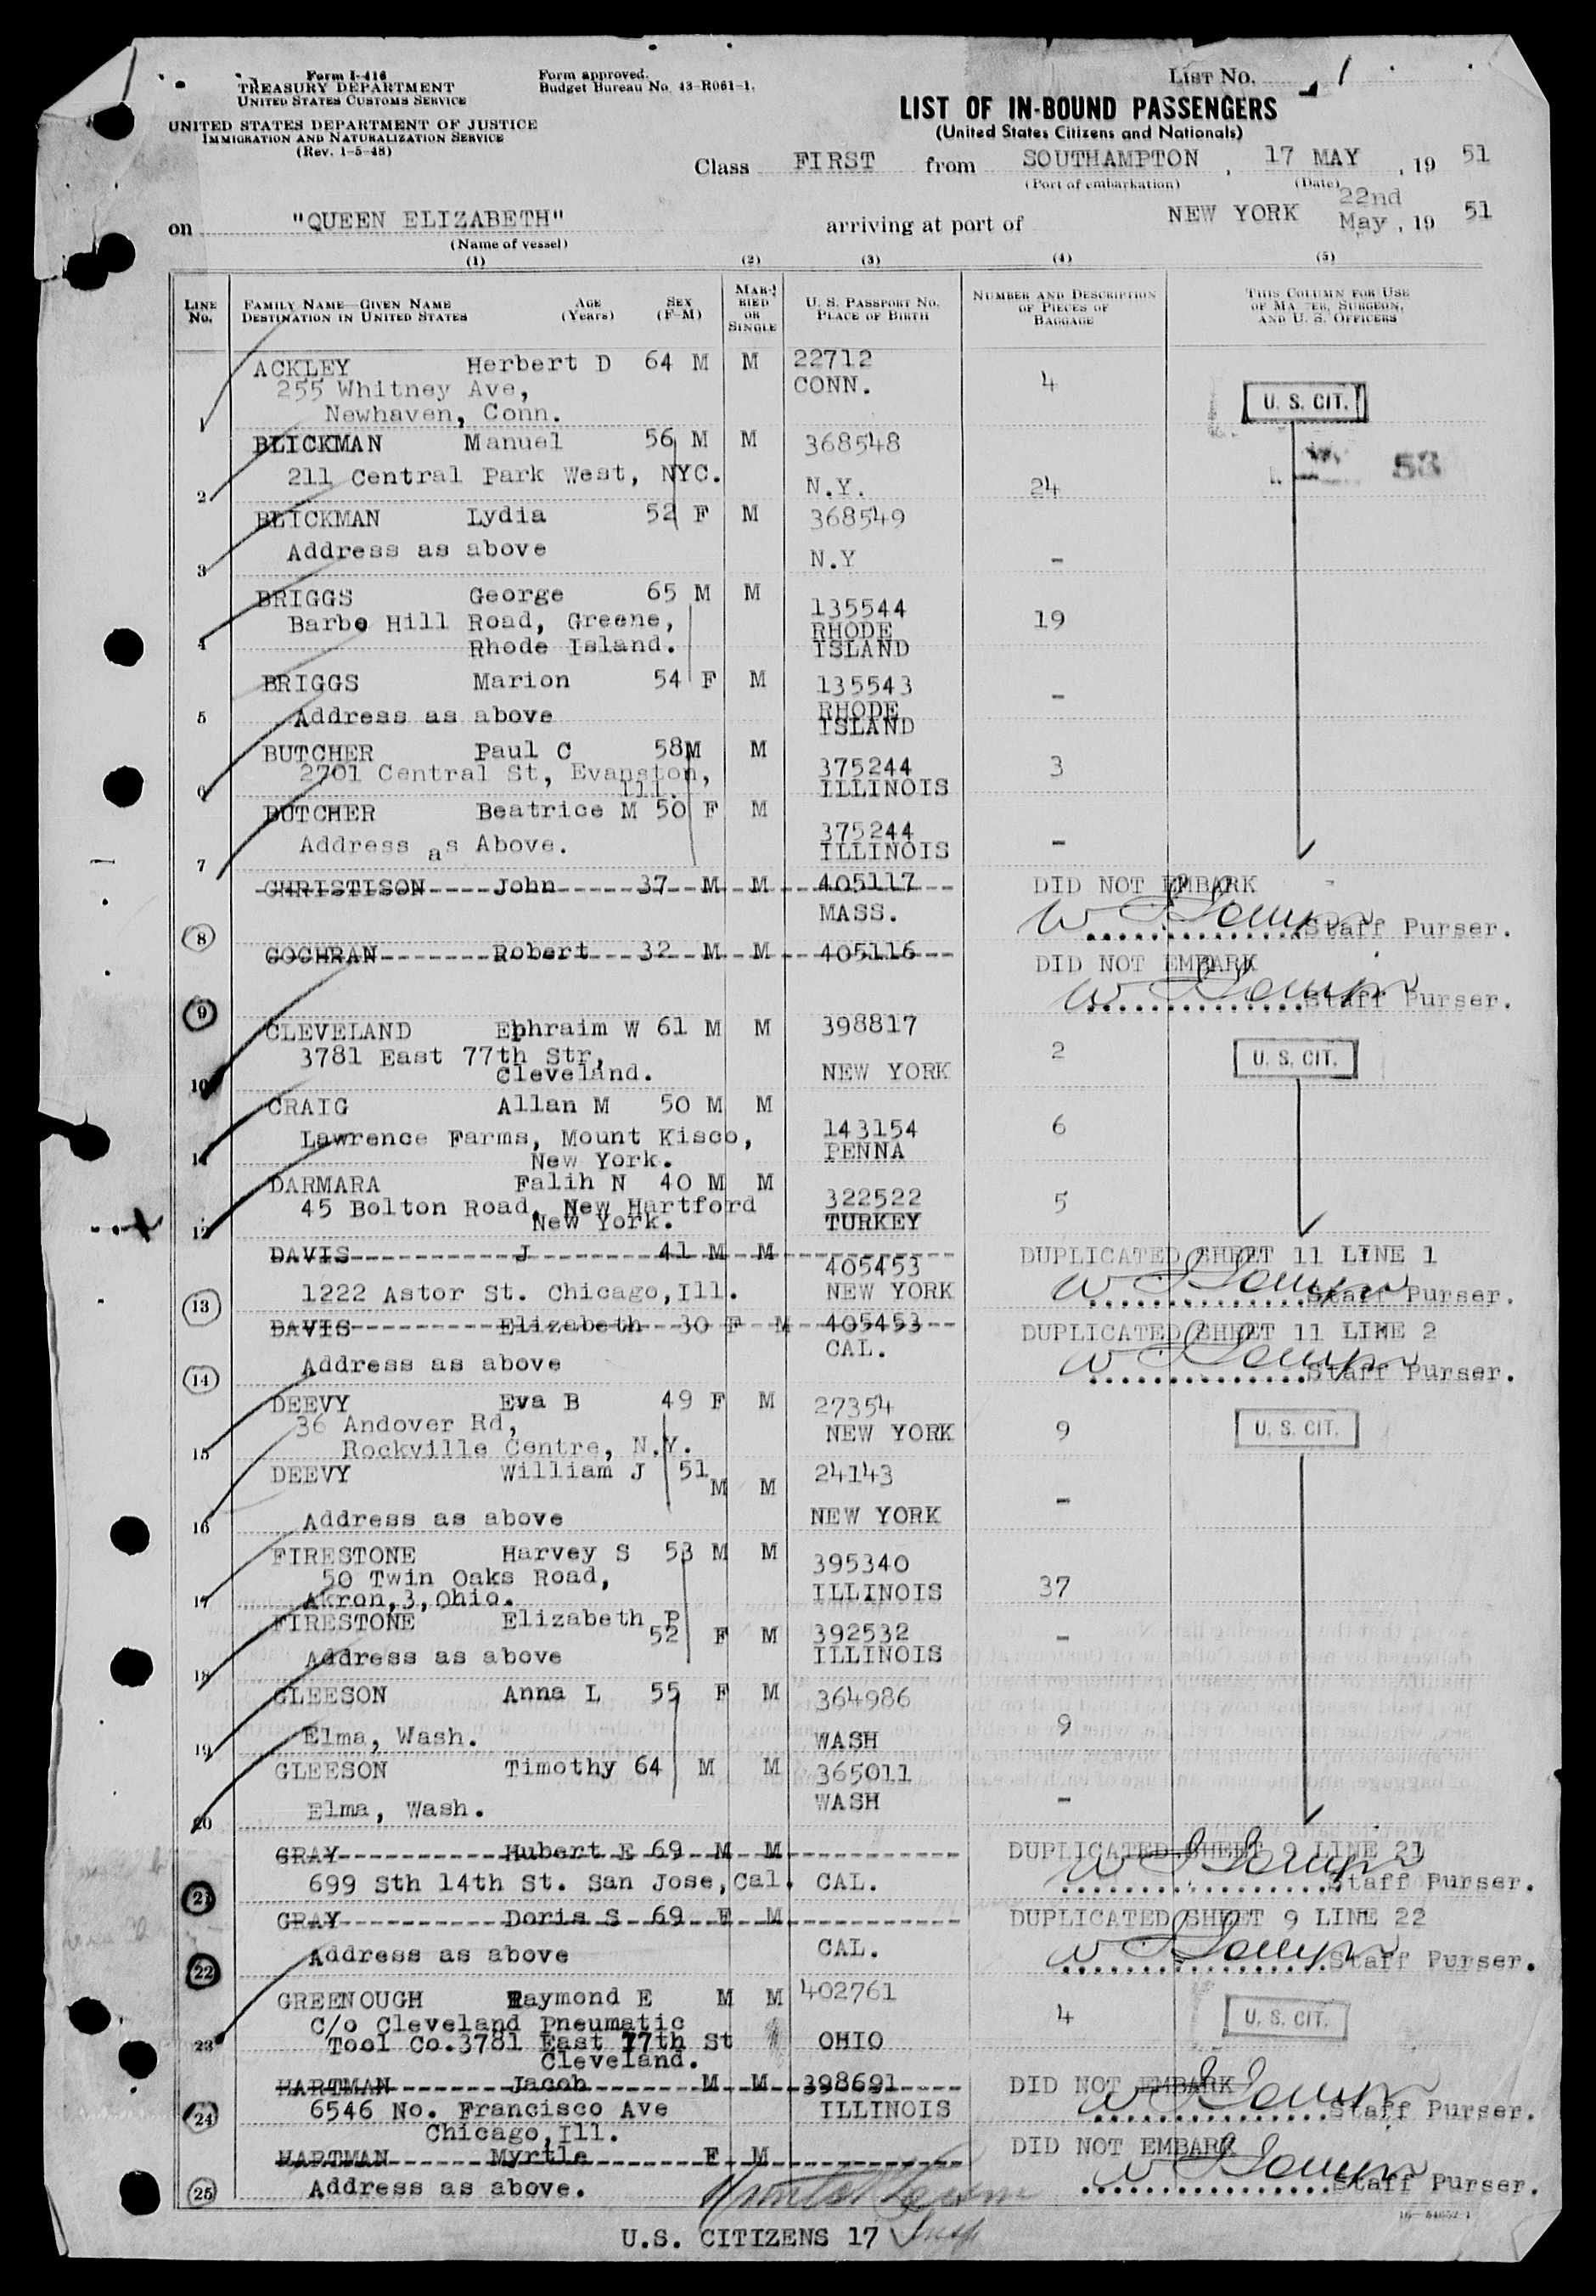 Form I-416
TREASURY DEPARTMENT
UNITED STATES CUSTOMS SERVICE
UNITED STATES DEPARTMENT OF JUSTICE
IMMIGRATION AND NATURALIZATION SERVICE
(Rev. 1-5-48)
Form approved.
Budget Bureau No. 43-R061-1.
LIST No. 1
LIST OF IN-BOUND PASSENGERS
(United States Citizens and Nationals)
Class FIRST from SOUTHAMPTON, 17 MAY, 19 51
(Port of embarkation) (Date)
on "QUEEN ELIZABETH" arriving at port of NEW YORK 22nd May, 19 51
(Name of vessel)
(1) (2) (3) (4) (5)
LINE No. FAMILY NAME—GIVEN NAME DESTINATION IN UNITED STATES AGE (Years) SEX (F-M) MARRIED OR SINGLE U. S. PASSPORT NO. PLACE OF BIRTH NUMBER AND DESCRIPTION OF PIECES OF BAGGAGE THIS COLUMN FOR USE OF MASTER, SURGEON, AND U. S. OFFICERS
ACKLEY Herbert D 64 M M 22712
255 Whitney Ave, CONN. 4 U. S. CIT.
1 Newhaven, Conn.
BLICKMAN Manuel 56 M M 368548
53
2 211 Central Park West, NYC. N.Y. 24
BLICKMAN Lydia 52 F M 368549
3 Address as above N.Y -
BRIGGS George 65 M M 135544
Barbe Hill Road, Greene, RHODE 19
4 Rhode Island. ISLAND
BRIGGS Marion 54 F M 135543 -
5 Address as above RHODE
ISLAND
BUTCHER Paul C 58M M 375244 3
2701 Central St, Evanston,
6 Ill. ILLINOIS
BUTCHER Beatrice M 50 F M 375244
7 Address as Above. ILLINOIS -
CHRISTISON John 37 M M 405117 DID NOT EMBARK
8 MASS. Staff Purser.
COCHRAN Robert 32 M M 405116 DID NOT EMBARK
9 Staff Purser.
CLEVELAND Ephraim W 61 M M 398817
3781 East 77th Str, 2 U. S. CIT.
10 Cleveland. NEW YORK
CRAIG Allan M 50 M M 143154 6
Lawrence Farms, Mount Kisco, PENNA
11 New York.
DARMARA Falih N 40 M M 322522 5
45 Bolton Road, New Hartford TURKEY
12 New York.
DAVIS J 41 M M 405453 DUPLICATED SHEET 11 LINE 1
13 1222 Astor St. Chicago,Ill. NEW YORK Staff Purser.
DAVIS Elizabeth 30 F M 405453 DUPLICATED SHEET 11 LINE 2
14 Address as above CAL. Staff Purser.
DEEVY Eva B 49 F M 27354
36 Andover Rd, NEW YORK 9 U. S. CIT.
15 Rockville Centre, N.Y.
DEEVY William J 51 M M 24143 -
16 Address as above NEW YORK
FIRESTONE Harvey S 53 M M 395340
50 Twin Oaks Road, ILLINOIS 37
17 Akron,3,Ohio.
FIRESTONE Elizabeth P 52 F M 392532 -
18 Address as above ILLINOIS
GLEESON Anna L 55 F M 364986
19 Elma, Wash. WASH 9
GLEESON Timothy 64 M M 365011
20 Elma, Wash. WASH -
GRAY Hubert E 69 M M DUPLICATED SHEET 9 LINE 21
21 699 Sth 14th St. San Jose,Cal. CAL. Staff Purser.
GRAY Doris S 69 F M DUPLICATED SHEET 9 LINE 22
22 Address as above CAL. Staff Purser.
GREENOUGH Raymond E M M 402761
C/o Cleveland Pneumatic 4 U. S. CIT.
23 Tool Co.3781 East 77th St OHIO
Cleveland.
HARTMAN Jacob M M 398691 DID NOT EMBARK
24 6546 No. Francisco Ave ILLINOIS Staff Purser.
Chicago,Ill.
HARTMAN Myrtle F M DID NOT EMBARK
25 Address as above. Staff Purser.
U.S. CITIZENS 17